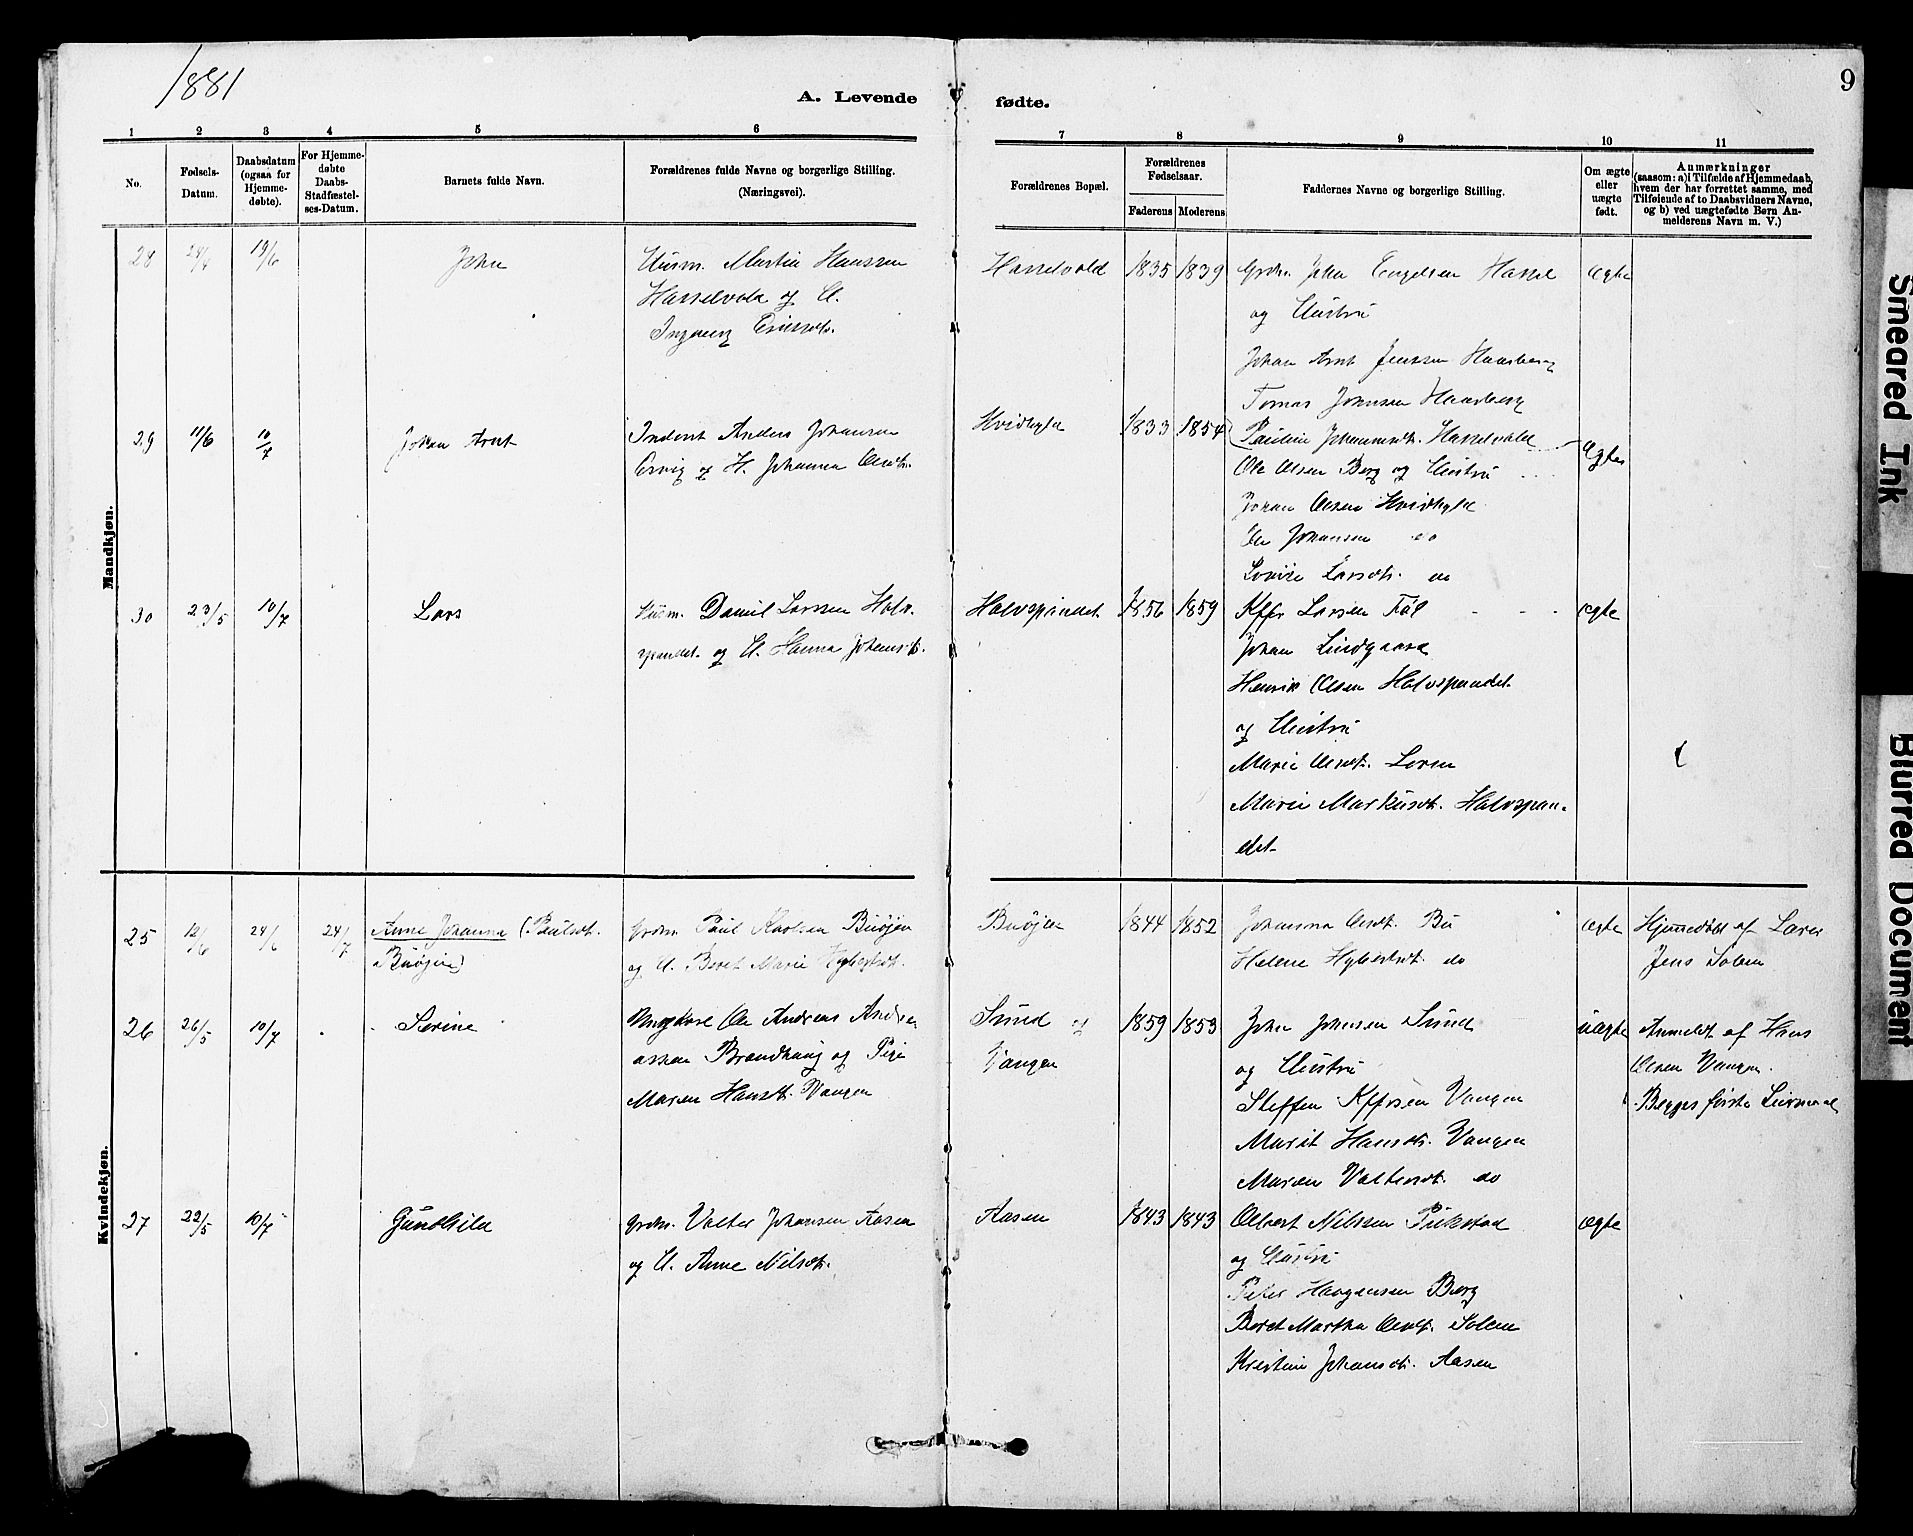 1881
9
A. Levende fødte.
1 2 3 4 5 6 7 8 9 10 11
No.
Fødsels-
Datum.
Daabsdatum
(ogsaa for
Hjemme-
døbte).
For Hjemme-
døbte
Daabs-
Stadfæstel-
ses-Datum.
Barnets fulde Navn.
Forældrenes fulde Navne og borgerlige Stilling.
(Næringsvei).
Forældrenes Bopæl.
Forældrenes
Fødselsaar.
Faderens Moderens
Faddernes Navne og borgerlige Stilling.
Om ægte
eller
uægte
født.
Anmærkninger
(saasom: a) i Tilfælde af Hjemmedaab,
hvem der har forrettet samme, med
Tilføiende af to Daabsvidners Navne,
og b) ved uægtefødte Børn An-
melderens Navn m. V.)
Mandkjøn.
28 24/4 19/6 John
Husm. Martin Hanssen
Hasselvold og H.
Ingeborg
Hasselvold 1835 1839
Grdm. John Engelsen Hassel
og Hustru
Johan Arnt Jenssen Haarberg
Tomas Johnsen Haarberg
Pauline Johannesdt. Hasselvold
ægte
29 11/6 10/7 Johan Arnt
Inderst Anders Johansen
og H. Johanna Olsdt.
Hvidhyld 1833 1854
Ole Olsen Berg og Hustru
Johan Olsen Hvidhyld
Ole Johansen do
Lovise Larsdt. do
ægte
30 23/5 10/7 Lars
Husm. Daniel Larssen Halv-
spandet og H. Hanna Johansdt.
Halvspandet 1856 1859
Kffr Larsen
Johan Lindgaard
Henrik Olsen Halvspandet
og Hustru
Marie Olsdt. Loren
Marie Markusdt. Halvspan-
det
ægte
Kvindekjøn.
25 12/6 24/6 24/7 Anne Johanna (Paulsdt.
Buøjen)
Grdm. Paul Karlsen Buøjen
og H. Beret Marie
Buøjen 1844 1852
Johanna Olsdt. Bu
Helene do
ægte
Hjemmedøbt af Lærer
Jens Solem
26 26/5 10/7 Serine
Ungkarl Ole Andreas Andre-
assen Brandhaug og Pige
Maren Hansdt. Vangen
Sund og
Vangen
1859 1853
John Johnsen Sund
og Hustru
Steffen Kffrsen Vangen
Marit Hansdt. Vangen
Maren Valtersdt. do
uægte
Anmeldt af Hans
Olsen Vangen.
Begges første Leiermaal
27 22/5 10/7 Gunhild
Grdm. Valter Johansen Aasen
og H. Anne Nilsdt.
Aasen 1843 1843
Albert Nilssen
og Hustru
Peter Haagensen Berg
Beret Martha Olsdt. Solem
Kristine Johansdt. Aasen
ægte
Smeared Ink
Blurred Document